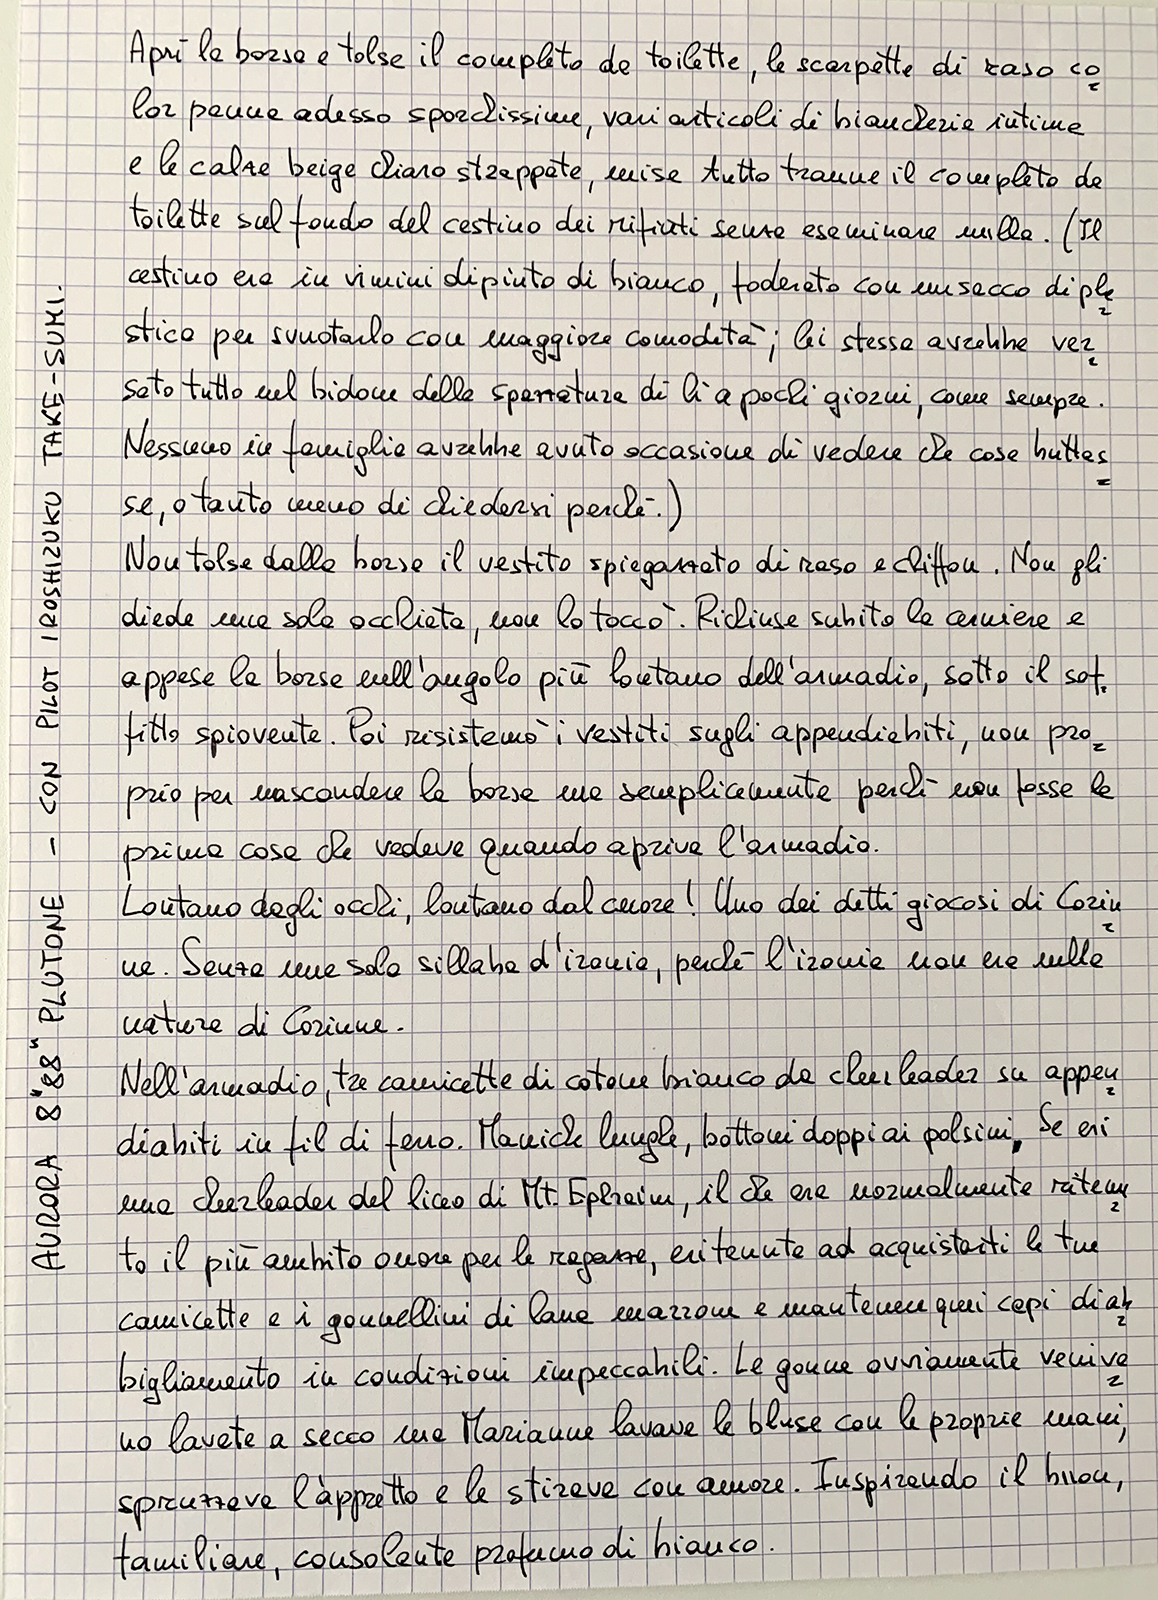 Aprì la borsa e tolse il completo da toilette, le scarpette di raso co
lor panna adesso sporchissime, vari articoli di biancheria intima
e le calze beige chiaro strappate, mise tutto tranne il completo da
toilette sul fondo del cestino dei rifiuti senza esaminare nulla. (Il
cestino era in vimini dipinto di bianco, foderato con un sacco di pla
stica per svuotarlo con maggiore comodità; lei stessa avrebbe ver
sato tutto nel bidone della spazzatura di lì a pochi giorni, come sempre.
Nessuno in famiglia avrebbe avuto occasione di vedere che cosa buttas
se, o tanto meno di chiedersi perché.)
Non tolse dalla borsa il vestito spiegazzato di raso e chiffon. Non gli
diede una sola occhiata, non lo toccò. Richiuse subito la cerniera e
appese la borsa nell'angolo più lontano dell'armadio, sotto il sof
fitto spiovente. Poi risistemò i vestiti sugli appendiabiti, non pro
prio per nascondere la borsa ma semplicemente perché non fosse la
prima cosa che vedeva quando apriva l'armadio.
Lontano dagli occhi, lontano dal cuore! Uno dei detti giocosi di Corin
ne. Senza una sola sillaba d'ironia, perché l'ironia non era nella
natura di Corinne.
Nell'armadio, tre camicette di cotone bianco da cheerleader su appen
diabiti in fil di ferro. Maniche lunghe, bottoni doppi ai polsini. Se eri
una cheerleader del liceo di Mt. Ephraim, il che era normalmente ritenu
to il più ambito onore per le ragazze, eri tenuta ad acquistarti le tue
camicette e i gonnellini di lana marrone e mantenere quei capi di ab
bigliamento in condizioni impeccabili. Le gonne ovviamente veniva
no lavate a secco ma Marianne lavava le bluse con le proprie mani,
spruzzava l'appretto e le stirava con amore. Inspirando il buon,
familiare, consolante profumo di bianco.
AURORA 8"88" PLUTONE - CON PILOT IROSHIZUKU TAKE-SUMI.